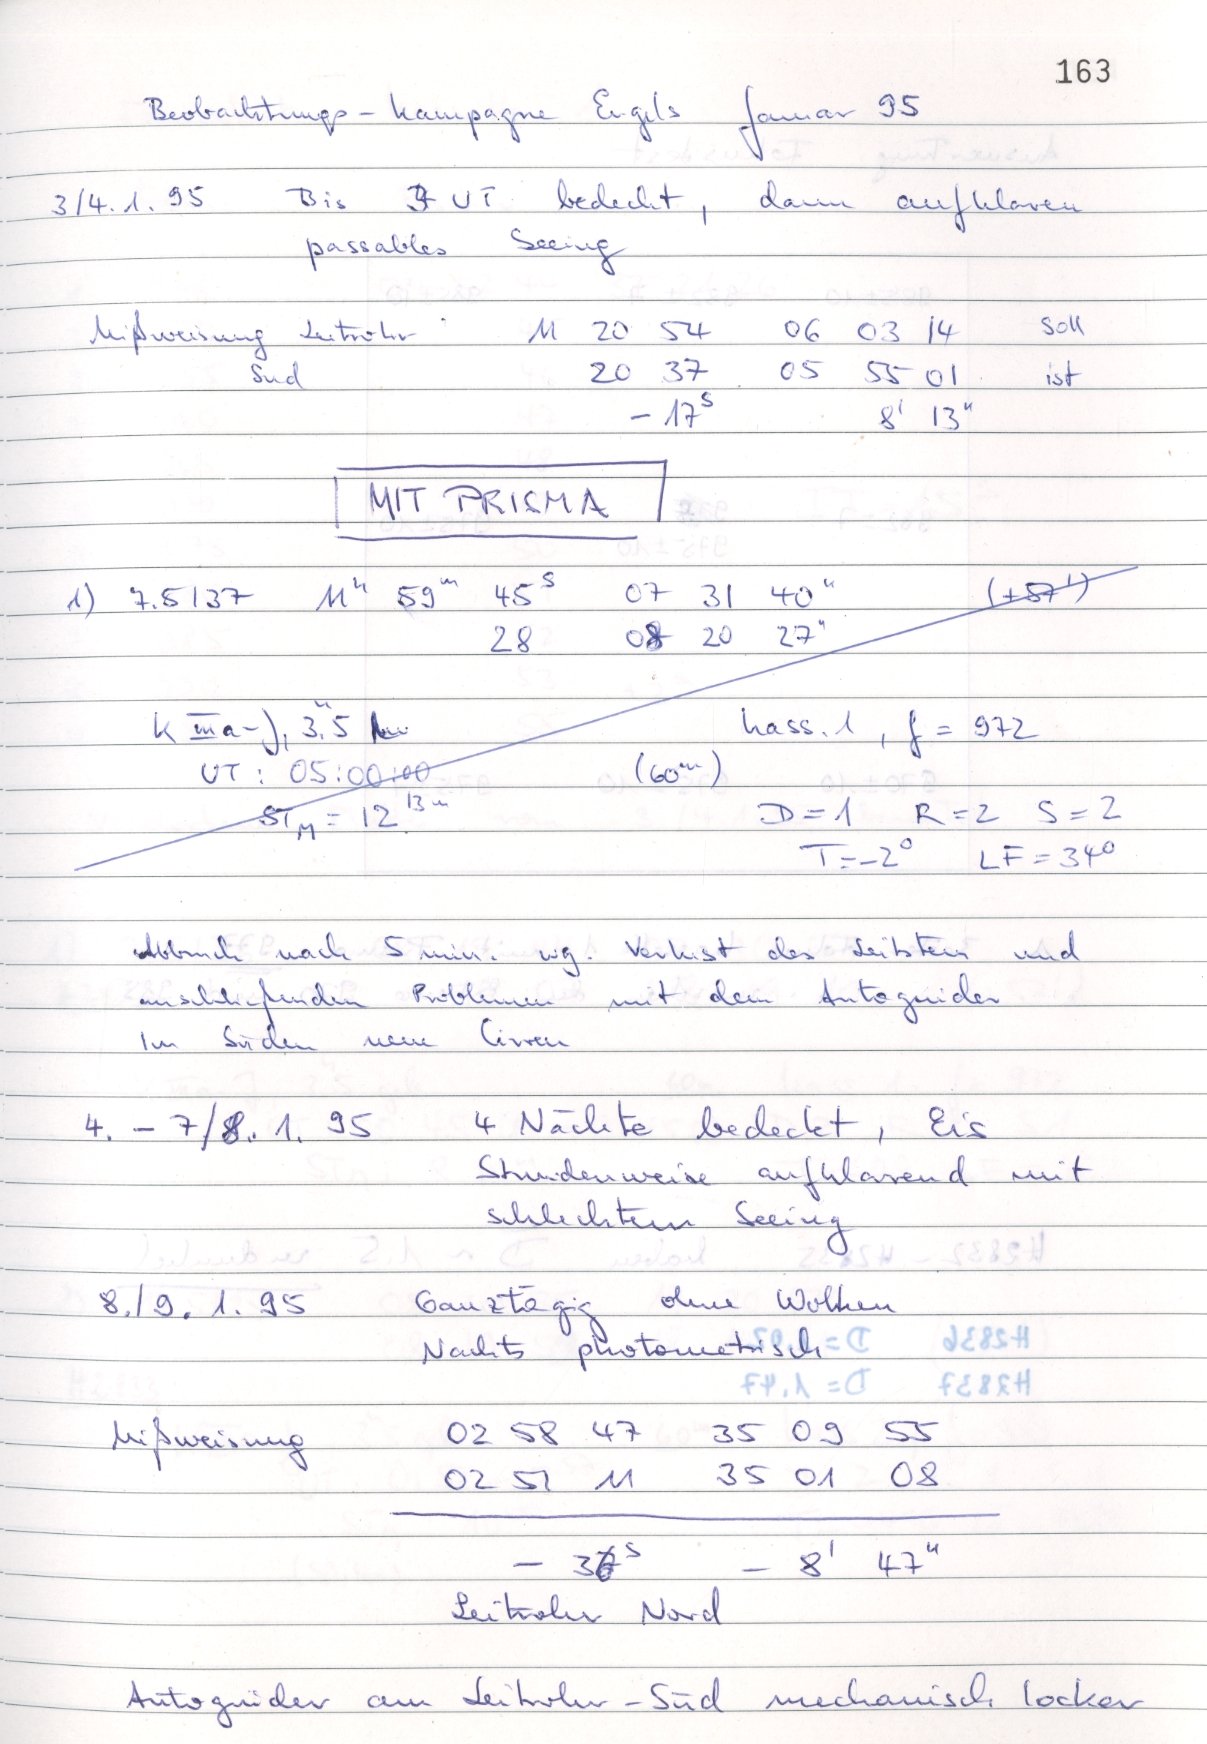 163
Beobachtungs-Kampagne Engels Januar 95
3/4.1.95 Bis UT bedeckt, dann aufklaren
passables Seeing
Mißweisung Leitrohr 11 20 54 06 03 14 Soll
Süd 20 37 05 55 01 ist
-17s 8' 13"
MIT PRISMA
1) 7.5137 11h 59m 45s 07 31 40" (+57')
28 08 20 27"
K IIIa-J, 3.5 Kass. 1, f = 972
UT: 05:00:00 (60m)
STM = 12 13m D=1 R=2 S=2
T=-2° LF=34%
Abbruch nach 5 min. wg. Verlust des Leitstern und
anschließenden Problemen mit dem Autoguider
Im Süden neue Cirren
4. - 7/8. 1. 95 4 Nächte bedeckt, Eis
Stundenweise aufklarend mit
schlechtem Seeing
8./9. 1. 95 Ganztägig ohne Wolken
Nachts photometrisch
Mißweisung 02 58 47 35 09 55
02 51 11 35 01 08
- 36s - 8' 47"
Leitrohr Nord
Autoguider am Leitrohr-Süd mechanisch locker